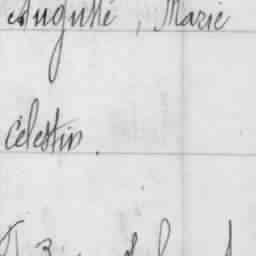 Auguste, Marie
Célestin.